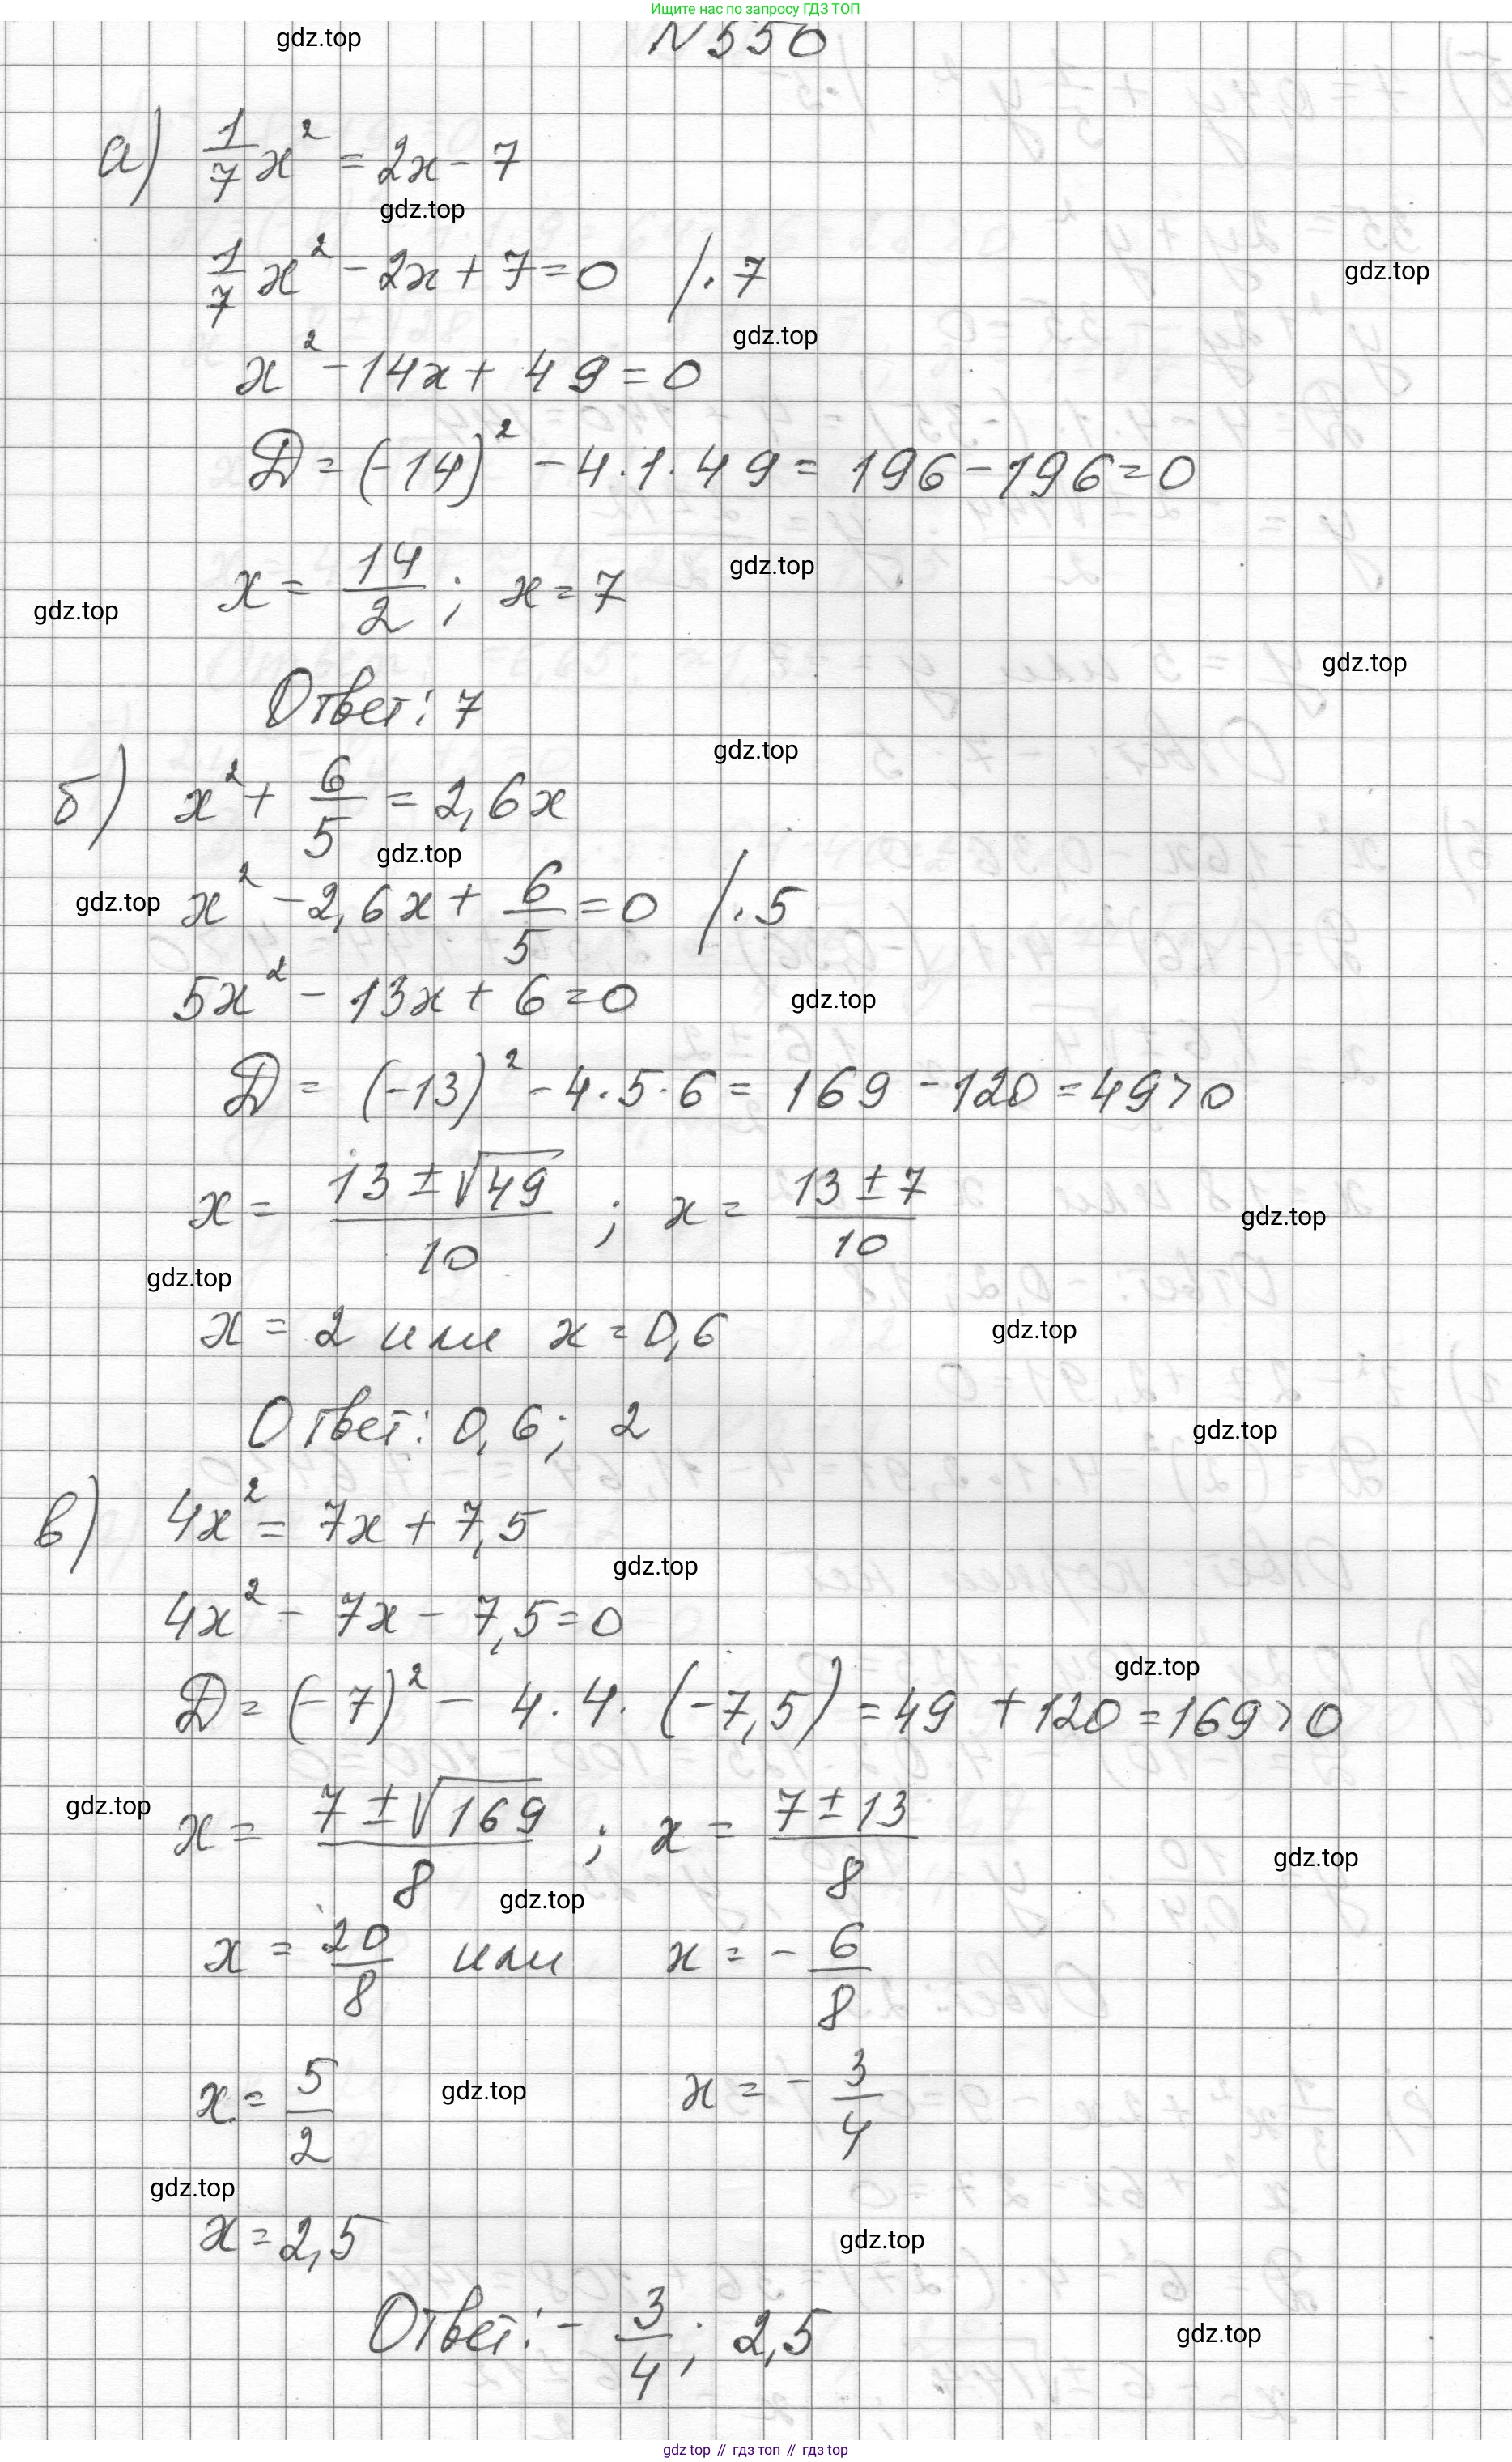 Ищите нас по запросу ГДЗ ТОП
gdz.top
N 550
а) 1/7 x² = 2x - 7
gdz.top
1/7 x² - 2x + 7 = 0 /·7
gdz.top
gdz.top
x² - 14x + 49 = 0
D = (-14)² - 4·1·49 = 196 - 196 = 0
gdz.top
x = 14/2 ; x = 7
gdz.top
gdz.top
Ответ: 7
gdz.top
б) x² + 6/5 = 2,6x
gdz.top
gdz.top
x² - 2,6x + 6/5 = 0 /·5
5x² - 13x + 6 = 0
gdz.top
D = (-13)² - 4·5·6 = 169 - 120 = 49 > 0
x = 13 ± √49/10 ; x = 13 ± 7/10
gdz.top
gdz.top
x = 2 или x = 0,6
gdz.top
Ответ: 0,6; 2
gdz.top
в) 4x² = 7x + 7,5
gdz.top
4x² - 7x - 7,5 = 0
gdz.top
D = (-7)² - 4·4·(-7,5) = 49 + 120 = 169 > 0
gdz.top
x = 7 ± √169/8 ; x = 7 ± 13/8
gdz.top
gdz.top
x = 20/8 или x = - 6/8
x = 5/2 x = - 3/4
gdz.top
gdz.top
x = 2,5
gdz.top
Ответ: - 3/4; 2,5
gdz.top
gdz.top // гдз топ // гдз.top